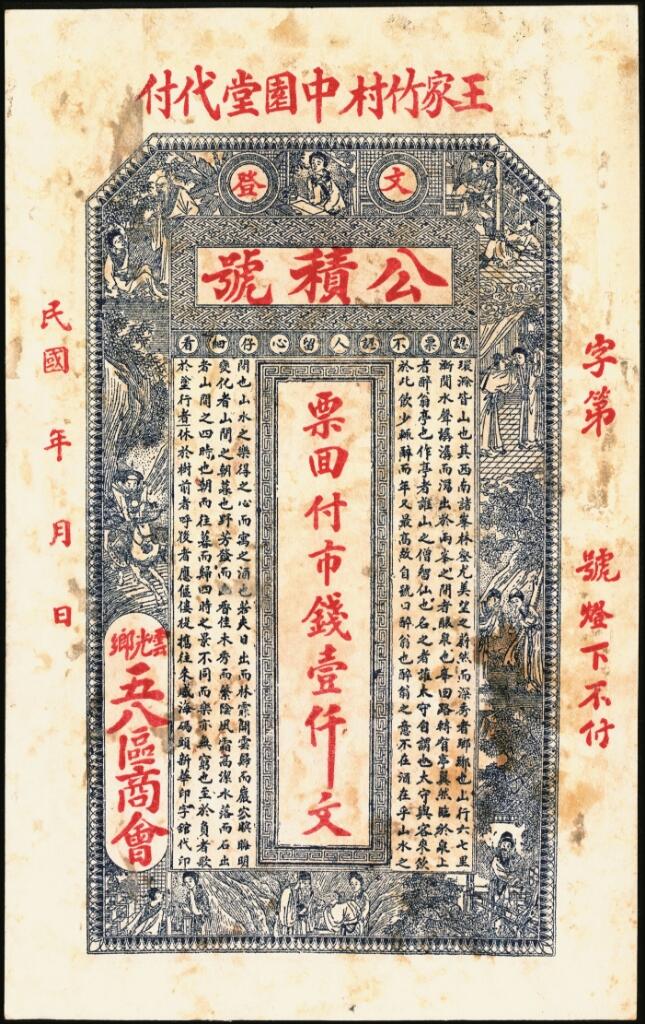 王家竹村中園堂代付
文登
公積號
認票不認人留心仔細看
字第　號燈下不付
環滁皆山也其西南諸峯林壑尤美望之蔚然而深秀者瑯琊也山行六七里
漸聞水聲潺潺而瀉出於兩峯之間者釀泉也峯回路轉有亭翼然臨於泉上
者醉翁亭也作亭者誰山之僧智仙也名之者誰太守自謂也太守與客來飲
於此飲少輒醉而年又最高故自號曰醉翁也醉翁之意不在酒在乎山水之
票回付市錢壹仟文
間也山水之樂得之心而寓之酒也若夫日出而林霏開雲歸而巖穴暝晦明
變化者山間之朝暮也野芳發而香佳木秀而繁陰風霜高潔水落而石出
者山間之四時也朝而往暮而歸四時之景不同而樂亦無窮也至於負者歌
於塗行者休於樹前者呼後者應傴僂提攜往來威海碼頭新華印字館代印
雲光鄉
五八區商會
民國　年　月　日